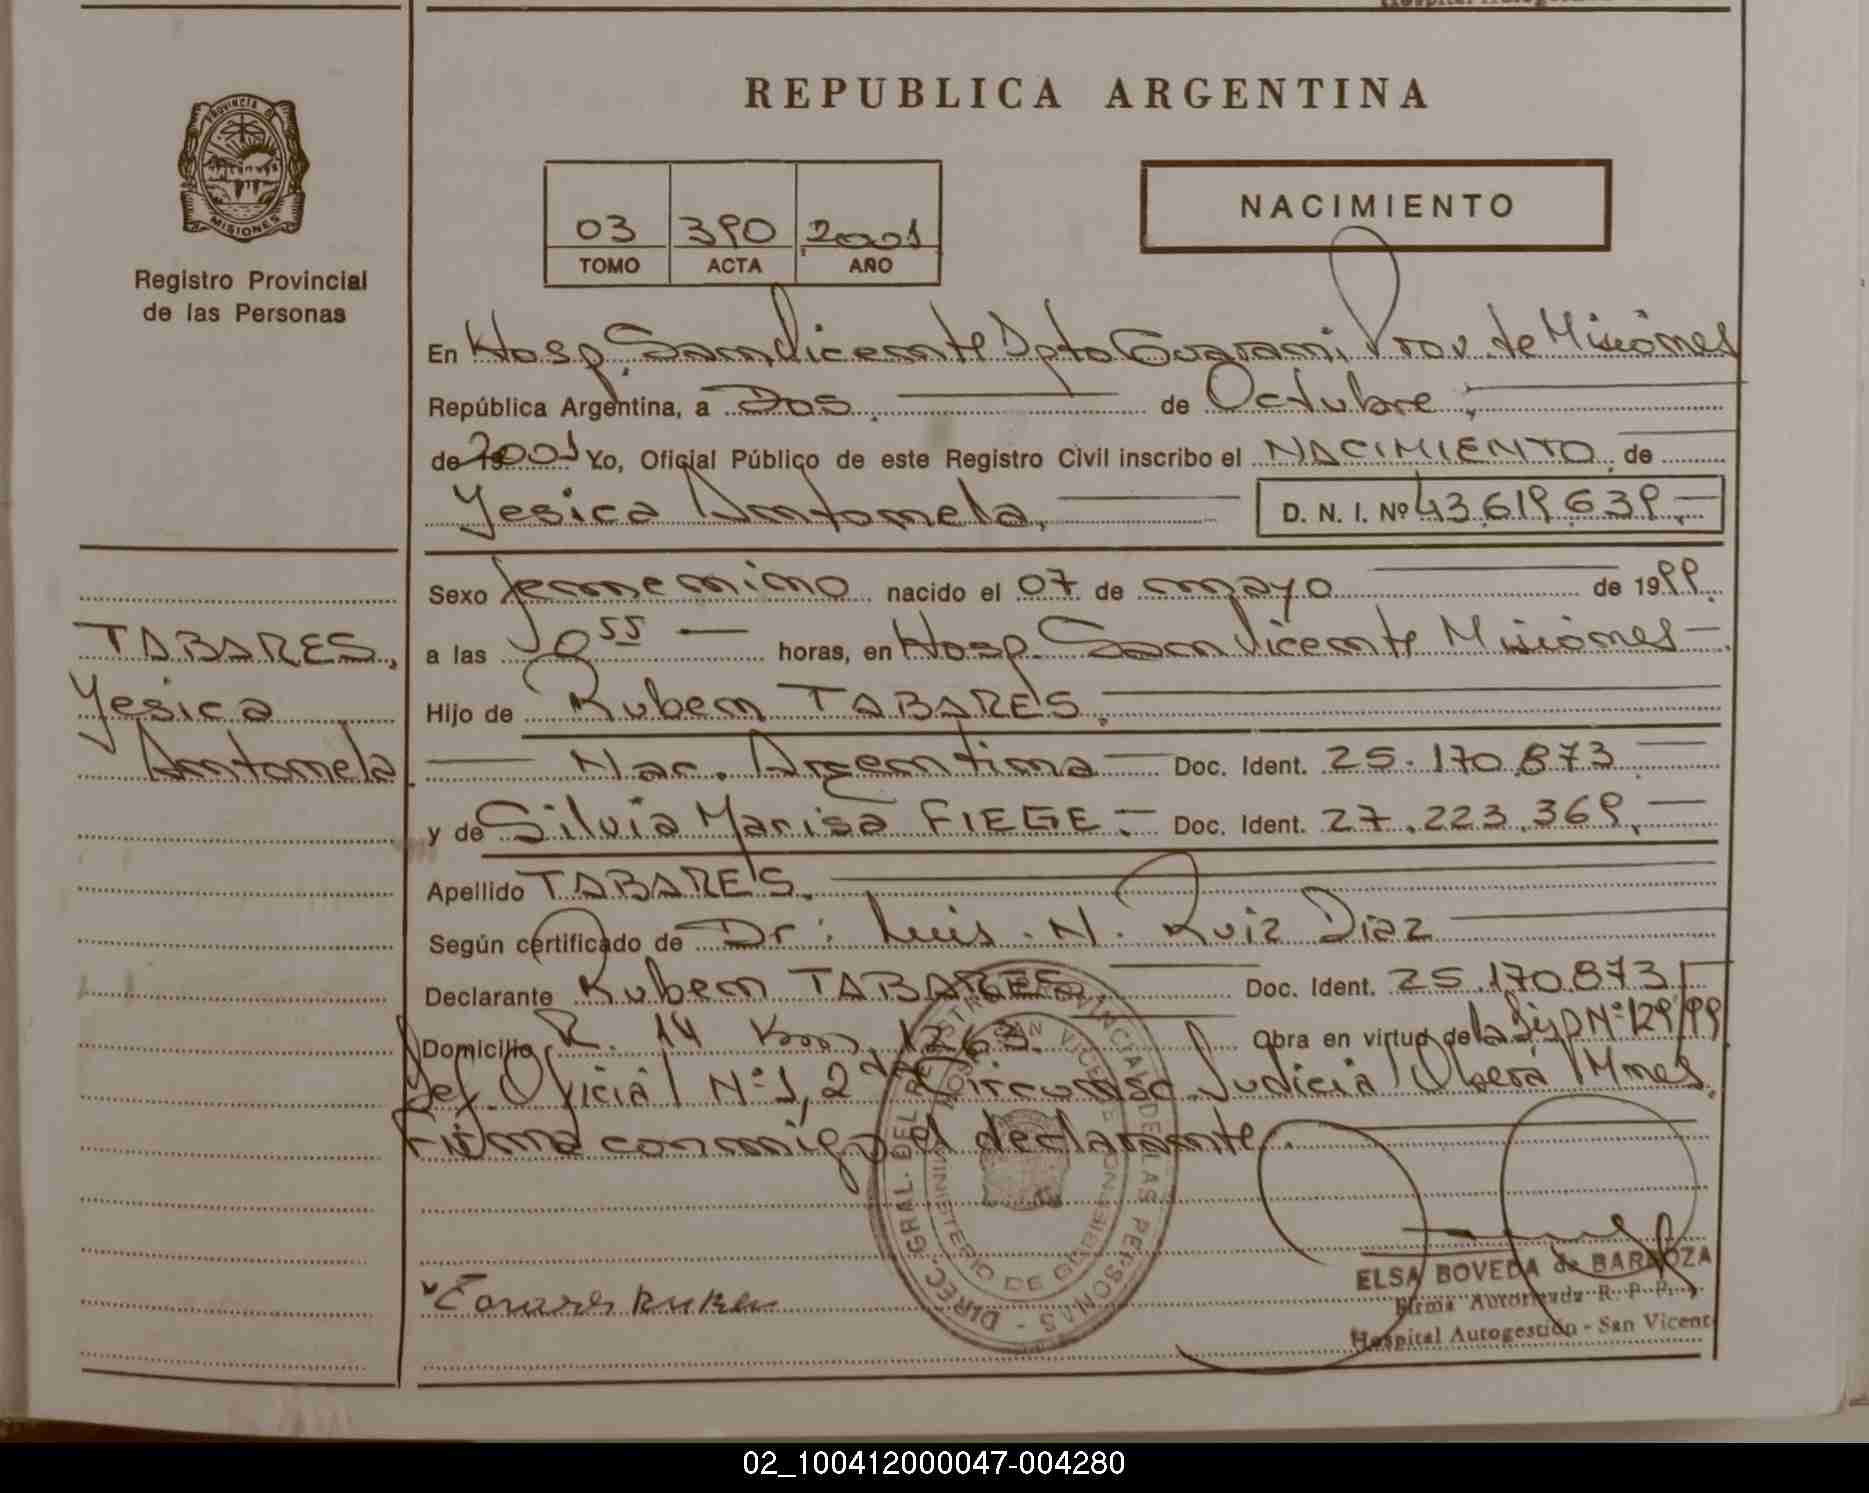 REPUBLICA ARGENTINA
PROVINCIA D
MISIONES
Registro Provincial
de las Personas
03 390 2001
TOMO ACTA AÑO
NACIMIENTO
En Hosp. San Vicente Dpto Guarani, Prov. de Misiones
República Argentina, a Dos. de Octubre,
de 2001 Yo, Oficial Público de este Registro Civil inscribo el NACIMIENTO, de
Yesica Antonela, D. N. I. Nº 43.619.639.-
TABARES,
Yesica
Antonela.
Sexo femenino nacido el 07 de mayo de 1999.
a las 0 55 horas, en Hosp. San Vicente Misiones
Hijo de Ruben TABARES.
Nac. Argentina Doc. Ident. 25.170.873
y de Silvia Marisa FIEGE.- Doc. Ident. 27.223.369.
Apellido TABARES.
Según certificado de Dr: Luis. N. Ruiz Diaz
Declarante Ruben TABARES, Doc. Ident. 25.170.873
Domicilio R. 14 Km. 1263. Obra en virtud de la Disp Nº 129/99
Def. Oficial Nº 1, 2da Circunsc. Judicial Oberá Mnes.
Firma conmigo el declarante.
DIREC. GRAL. DEL REGISTRO PROVINCIAL DE LAS PERSONAS -
MINISTERIO DE GOBIERNO
SAN VICENTE
Tavares Ruben
ELSA BOVEDA de BARBOZA
Firma Autorizada R. P. P.
Hospital Autogestión - San Vicent
02_100412000047-004280